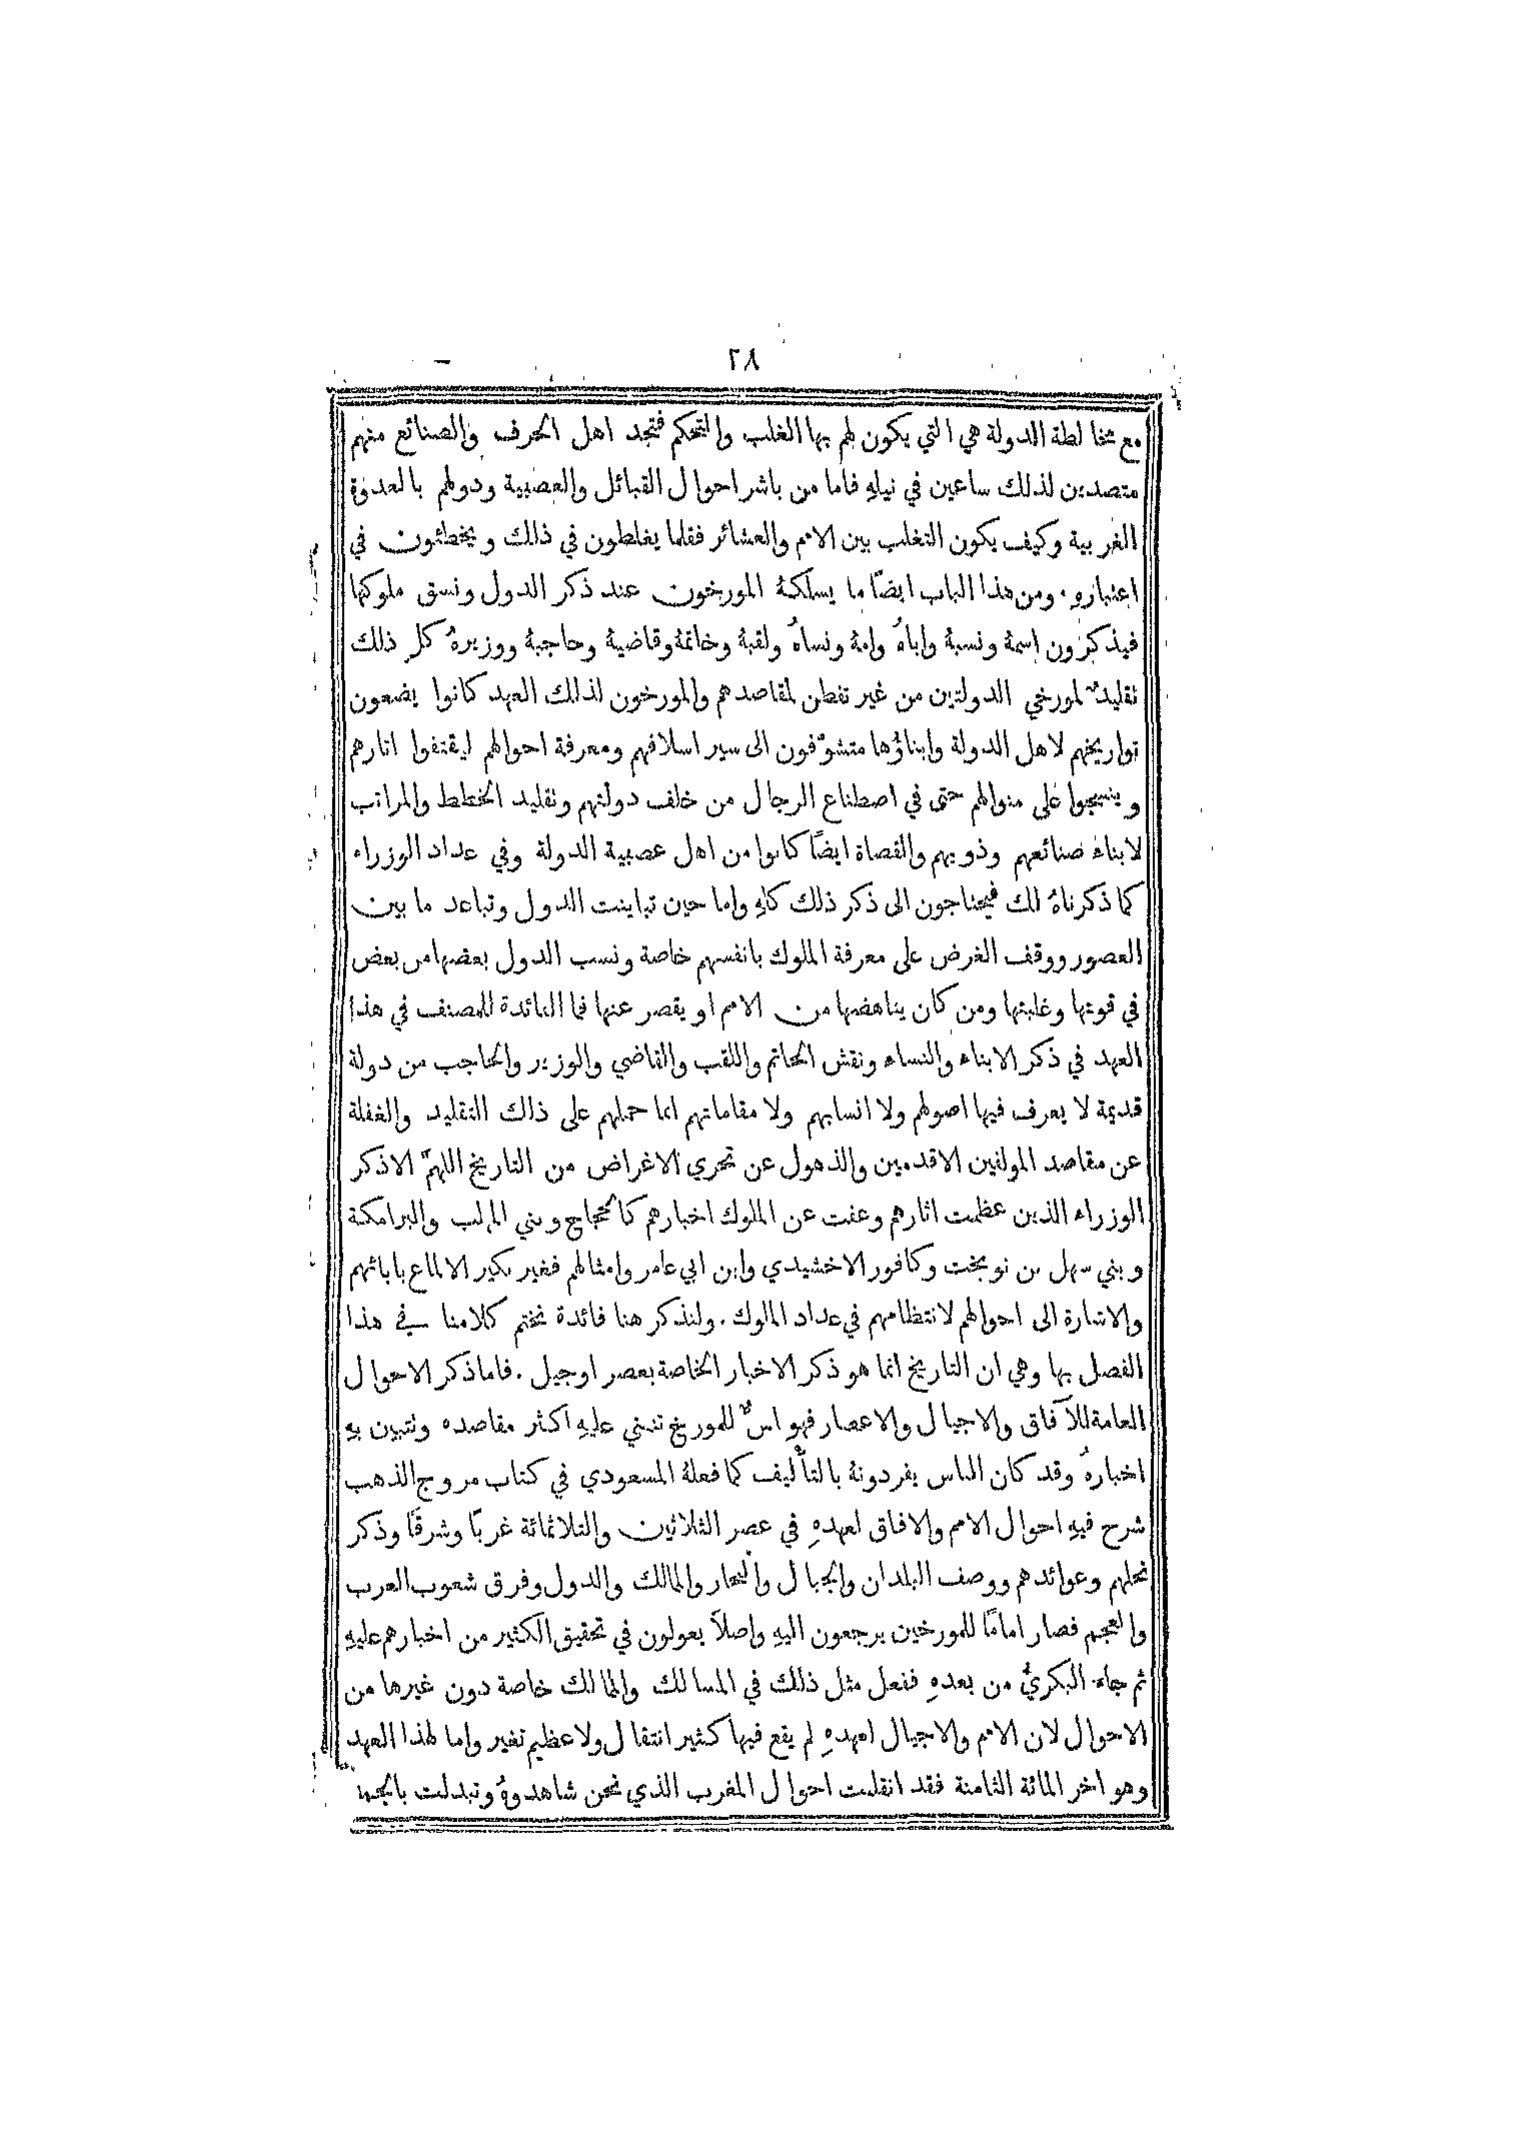 ٢٨
مع مخالطة الدولة هي التي يكون لهم بها الغلب والتحكم فتجد اهل الحرف والصنائع منهم
متصدين لذلك ساعين في نيلهِ فاما من باشر احوال القبائل والعصبية ودولهم بالعدوة
الغربية وكيف يكون التغلب بين الامم والعشائر فقلما يغلطون في ذلك ويخطئون في
اعتبارهِ. ومن هذا الباب ايضًا ما يسلكهُ المورخون عند ذكر الدول ونسق ملوكها
فيذكرون اسمهُ ونسبهُ واباهُ وامهُ ونساهُ ولقبهُ وخاتمهُ وقاضيهُ وحاجبهُ ووزيرهُ كل ذلك
تقليدٌ لمورخي الدولتين من غير تفطن لمقاصدهم والمورخون لذلك العهد كانوا يضعون
تواريخهم لاهل الدولة وابناؤُها متشوّفون الى سير اسلافهم ومعرفة احوالهم ليقتفوا اثارهم
وينسجوا على منوالهم حتى في اصطناع الرجال من خلف دولتهم وتقليد الخطط والمراتب
لابناء صنائعهم وذويهم والقضاة ايضًا كانوا من اهل عصبية الدولة وفي عداد الوزراء
كما ذكرناهُ لك فيحتاجون الى ذكر ذلك كلهِ واما حين تباينت الدول وتباعد ما بين
العصور ووقف الغرض على معرفة الملوك بانفسهم خاصة ونسب الدول بعضها من بعض
في قوتها وغلبتها ومن كان يناهضها من الامم او يقصر عنها فما الفائدة للمصنف في هذا
العهد في ذكر الابناء والنساء ونقش الخاتم واللقب والقاضي والوزير والحاجب من دولة
قديمة لا يعرف فيها اصولهم ولا انسابهم ولا مقاماتهم انما حملهم على ذلك التقليد والغفلة
عن مقاصد المولفين الاقدمين والذهول عن تحري الاغراض من التاريخ اللهمّ الا ذكر
الوزراء الذين عظمت اثارهم وعفت عن الملوك اخبارهم كالحجاج وبني المهلب والبرامكة
وبني سهل بن نوبخت وكافور الاخشيدي وابن ابي عامر وامثالهم فغير نكير الالماع بابائهم
والاشارة الى احوالهم لانتظامهم في عداد الملوك. ولنذكر هنا فائدة نختم كلامنا في هذا
الفصل بها وهي ان التاريخ انما هو ذكر الاخبار الخاصة بعصر او جيل. فاما ذكر الاحوال
العامة للآفاق والاجيال والاعصار فهو اسٌّ للمورخ تنبني عليهِ اكثر مقاصده وتتبين بهِ
اخبارهُ وقد كان الناس يفردونهُ بالتأليف كما فعلهُ المسعودي في كتاب مروج الذهب
شرح فيهِ احوال الامم والافاق لعهدهِ في عصر الثلاثين والثلاثمائة غربًا وشرقًا وذكر
نحلهم وعوائدهم ووصف البلدان والجبال والبحار والممالك والدول وفرق شعوب العرب
والعجم فصار امامًا للمورخين يرجعون اليهِ واصلاً يعولون في تحقيق الكثير من اخبارهم عليهِ
ثم جاء البكريُّ من بعدهِ ففعل مثل ذلك في المسالك والممالك خاصة دون غيرها من
الاحوال لان الامم والاجيال لعهدهِ لم يقع فيها كثير انتقال ولا عظيم تغير واما لهذا العهد
وهو اخر المائة الثامنة فقد انقلبت احوال المغرب الذي نحن شاهدوهُ وتبدلت